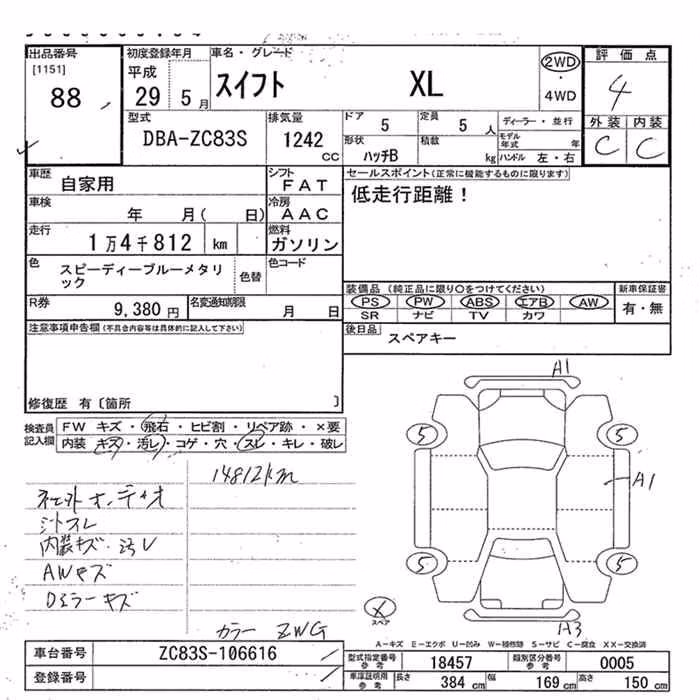 出品番号 初度登録年月 車名・グレード 評価点
[1151] 平成 スイフト XL 2WD
88 29 5月 ・ 4
4WD
型式 排気量 ドア 定員 ディーラー・並行 外装 内装
DBA-ZC83S 1242 5 5人 モデル年式 年 C C
CC 形状 積載
ハッチB kg ハンドル 左・右
車歴 シフト セールスポイント(正常に機能するものに限ります)
自家用 FAT 低走行距離!
車検 冷房
年 月( 日) AAC
走行 燃料
1万4千812 km ガソリン
色 色コード
スピーディーブルーメタリック 色替
装備品 (純正品に限り○をつけてください) 新車保証書
R券 名変通知期限 PS PW ABS エアB AW 有・無
9,380円 月 日 SR ナビ TV カワ
注意事項申告欄(不具合内容等は具体的に記入して下さい) 後日品
スペアキー
修復歴 有〔箇所 〕
A1
検査員 FW キズ・飛石・ヒビ割・リペア跡・×要
記入欄 内装 キズ・汚レ・コゲ・穴・スレ・キレ・破レ
5 5
14812km
A1
シートスレ
内装キズ・汚レ
AWキズ
5 5
スペア
カラー ZWG A3
A-キズ E-エクボ U-凹み W-補修跡 S-サビ C-腐食 XX-交換済
車台番号 ZC83S-106616 型式指定番号 参考 18457 類別区分番号 参考 0005
登録番号 車庫証明用 参考 長さ 384 cm 幅 169 cm 高さ 150 cm